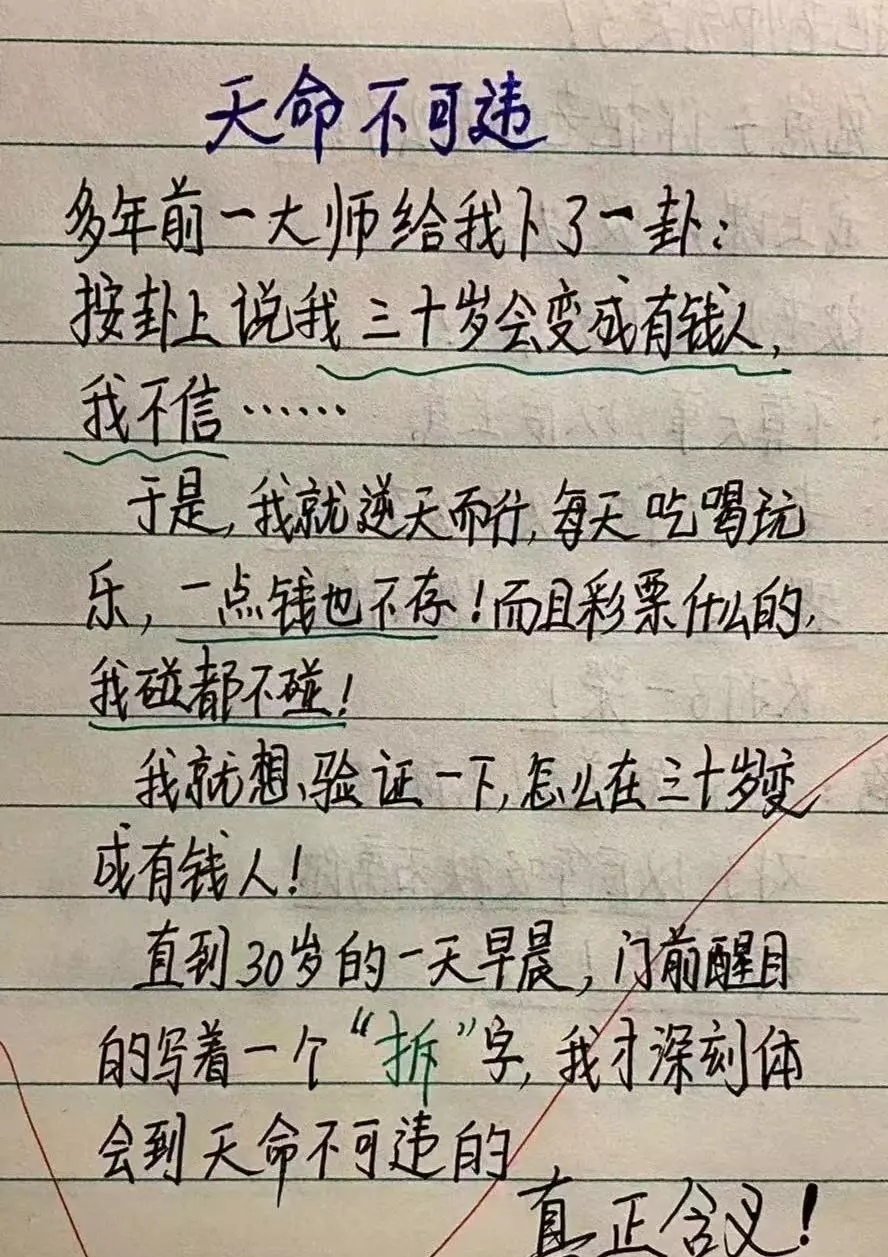 天命不可违
多年前一大师给我卜了一卦:
按卦上说我三十岁会变成有钱人,
我不信……
于是,我就逆天而行,每天吃喝玩
乐,一点钱也不存!而且彩票什么的,
我碰都不碰!
我就想、验证一下,怎么在三十岁变
成有钱人!
直到30岁的一天早晨,门前醒目
的写着一个“拆”字,我才深刻体
会到天命不可违的
真正含义!